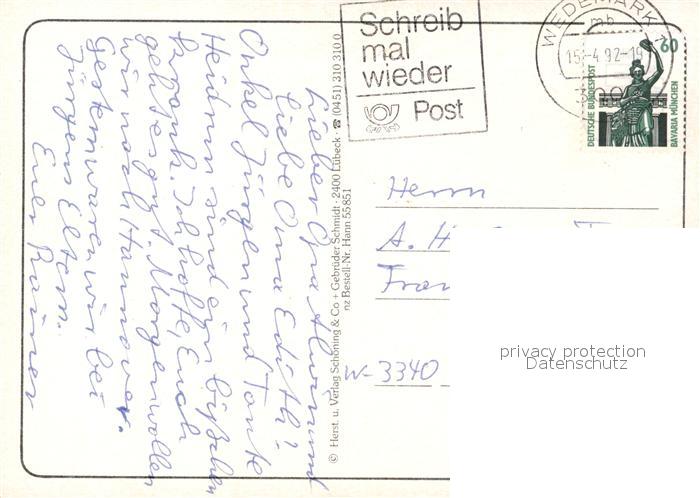 Lieber Opa Alwin und
liebe Oma Edith!
Onkel Jürgen und Tante
Heidrun sind ein bißchen
krank. Ich hoffe, Euch
geht es gut. Morgen wollen
wir nach Hannover.
Gestern waren wir bei
Jürgens Eltern.
Euer Rainer
© Herst. u. Verlag Schöning & Co + Gebrüder Schmidt · 2400 Lübeck · ☎ (0451) 310 310 0
nz Bestell-Nr. Hann 55 851
Schreib
mal
wieder
Post
WEDEMARK 1
mb
15.-4.92-19
60
DEUTSCHE BUNDESPOST
BAVARIA MÜNCHEN
Herrn
A. H
W-3340
privacy protection
Datenschutz